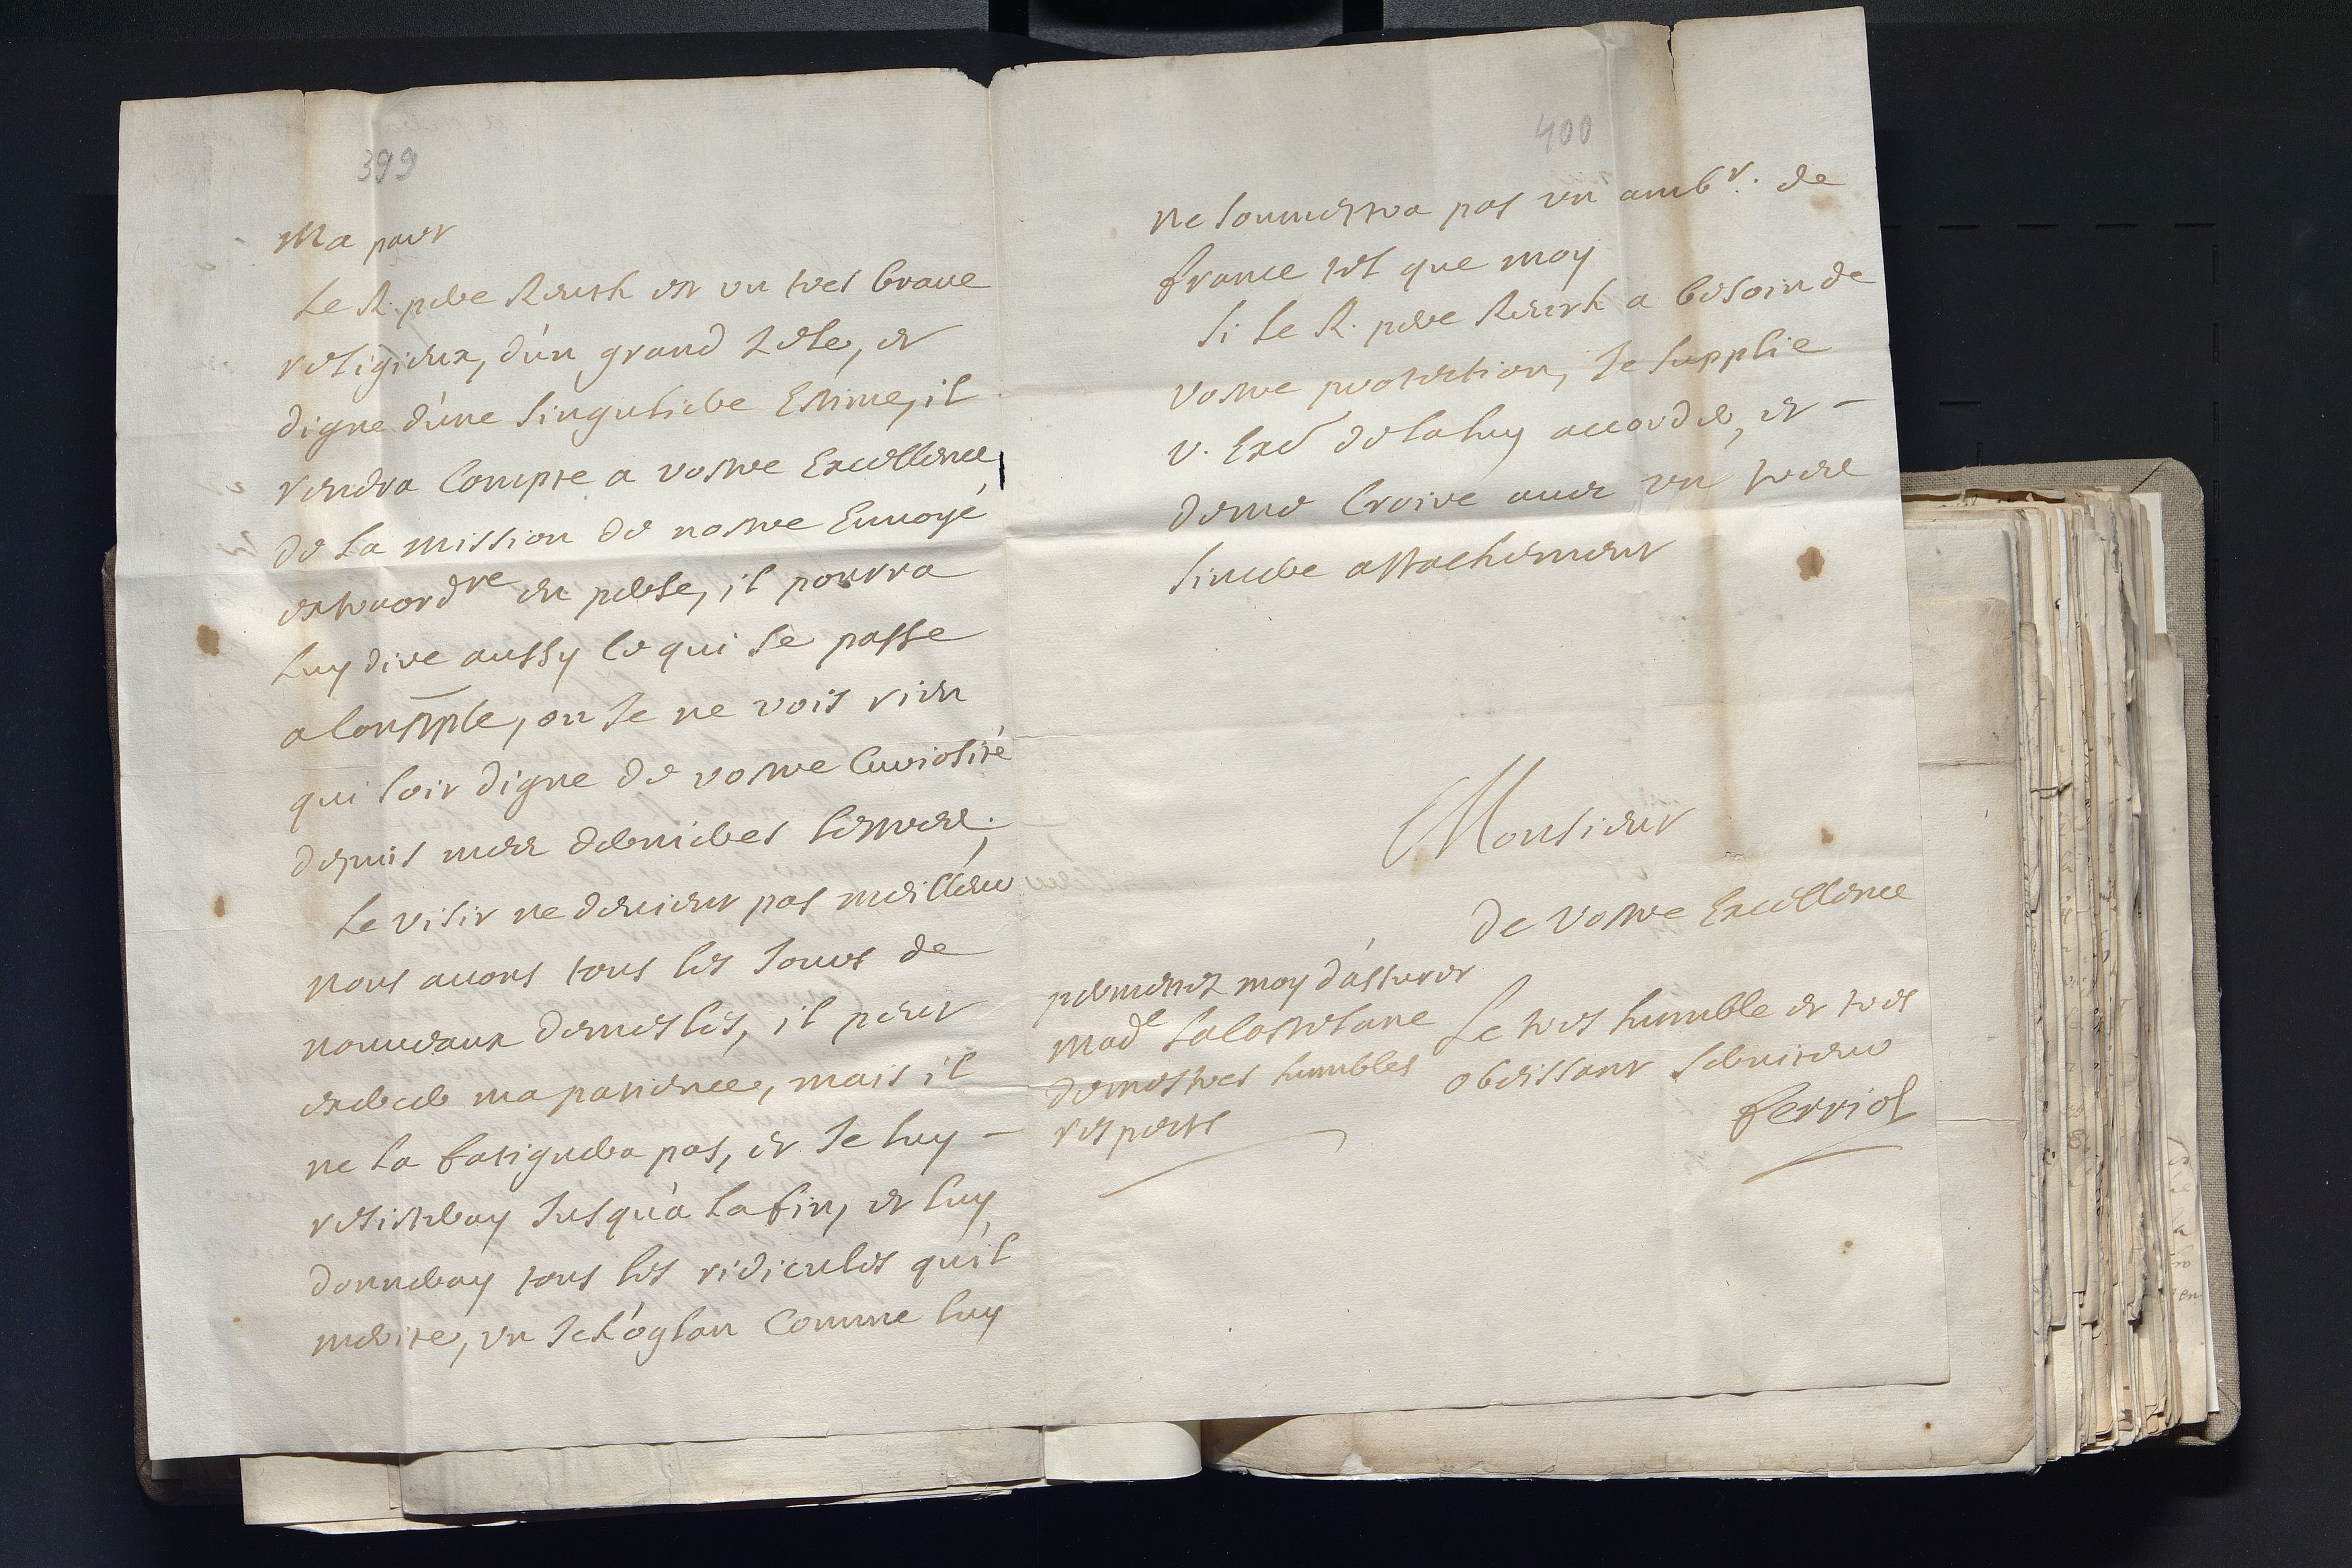 399
Ma part
Le R. pere Reurk est un tres brave
religieux, d'un grand zele, et
digne d'une singuliere Estime, il
rendra Compte a vostre Excellence
de la mission de nostre Envoyé
extraord.re en perse, il pourra
luy dire aussy ce qui se passe
a Constple, ou Je ne vois rien
qui soit digne de vostre Curiosité
depuis mes dernieres lettres.
Le visir ne devient pas meilleur,
nous avons tous les Jours de
nouveaux demesles, il peut
exercer ma patience, mais il
ne la fatiguera pas, et Je luy –
resisteray Jusqu'a la fin, et luy
donneray tous les ridicules qu'il
merite, un Ich'oglan Comme luy
400
ne soumettra pas un amb.r de
france tel que moy
Si le R. pere Reurk a besoin de
vostre protection, Je supplie
v. Exce de la luy accorder, et –
de me Croire avec un tres
sincere attachement
Monsieur
De Vostre Excellence
permettez moy d'assurer
mad.e la Castelane
de mes tres humbles
respects
Le tres humble et tres
obeissant serviteur
ferriol